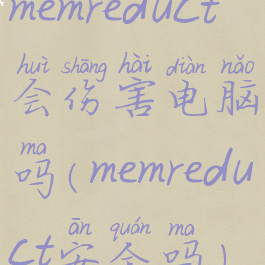 memreduct
huì shāng hài diàn nǎo
会伤害电脑
ma
吗(memredu
ān quán ma
ct安全吗)